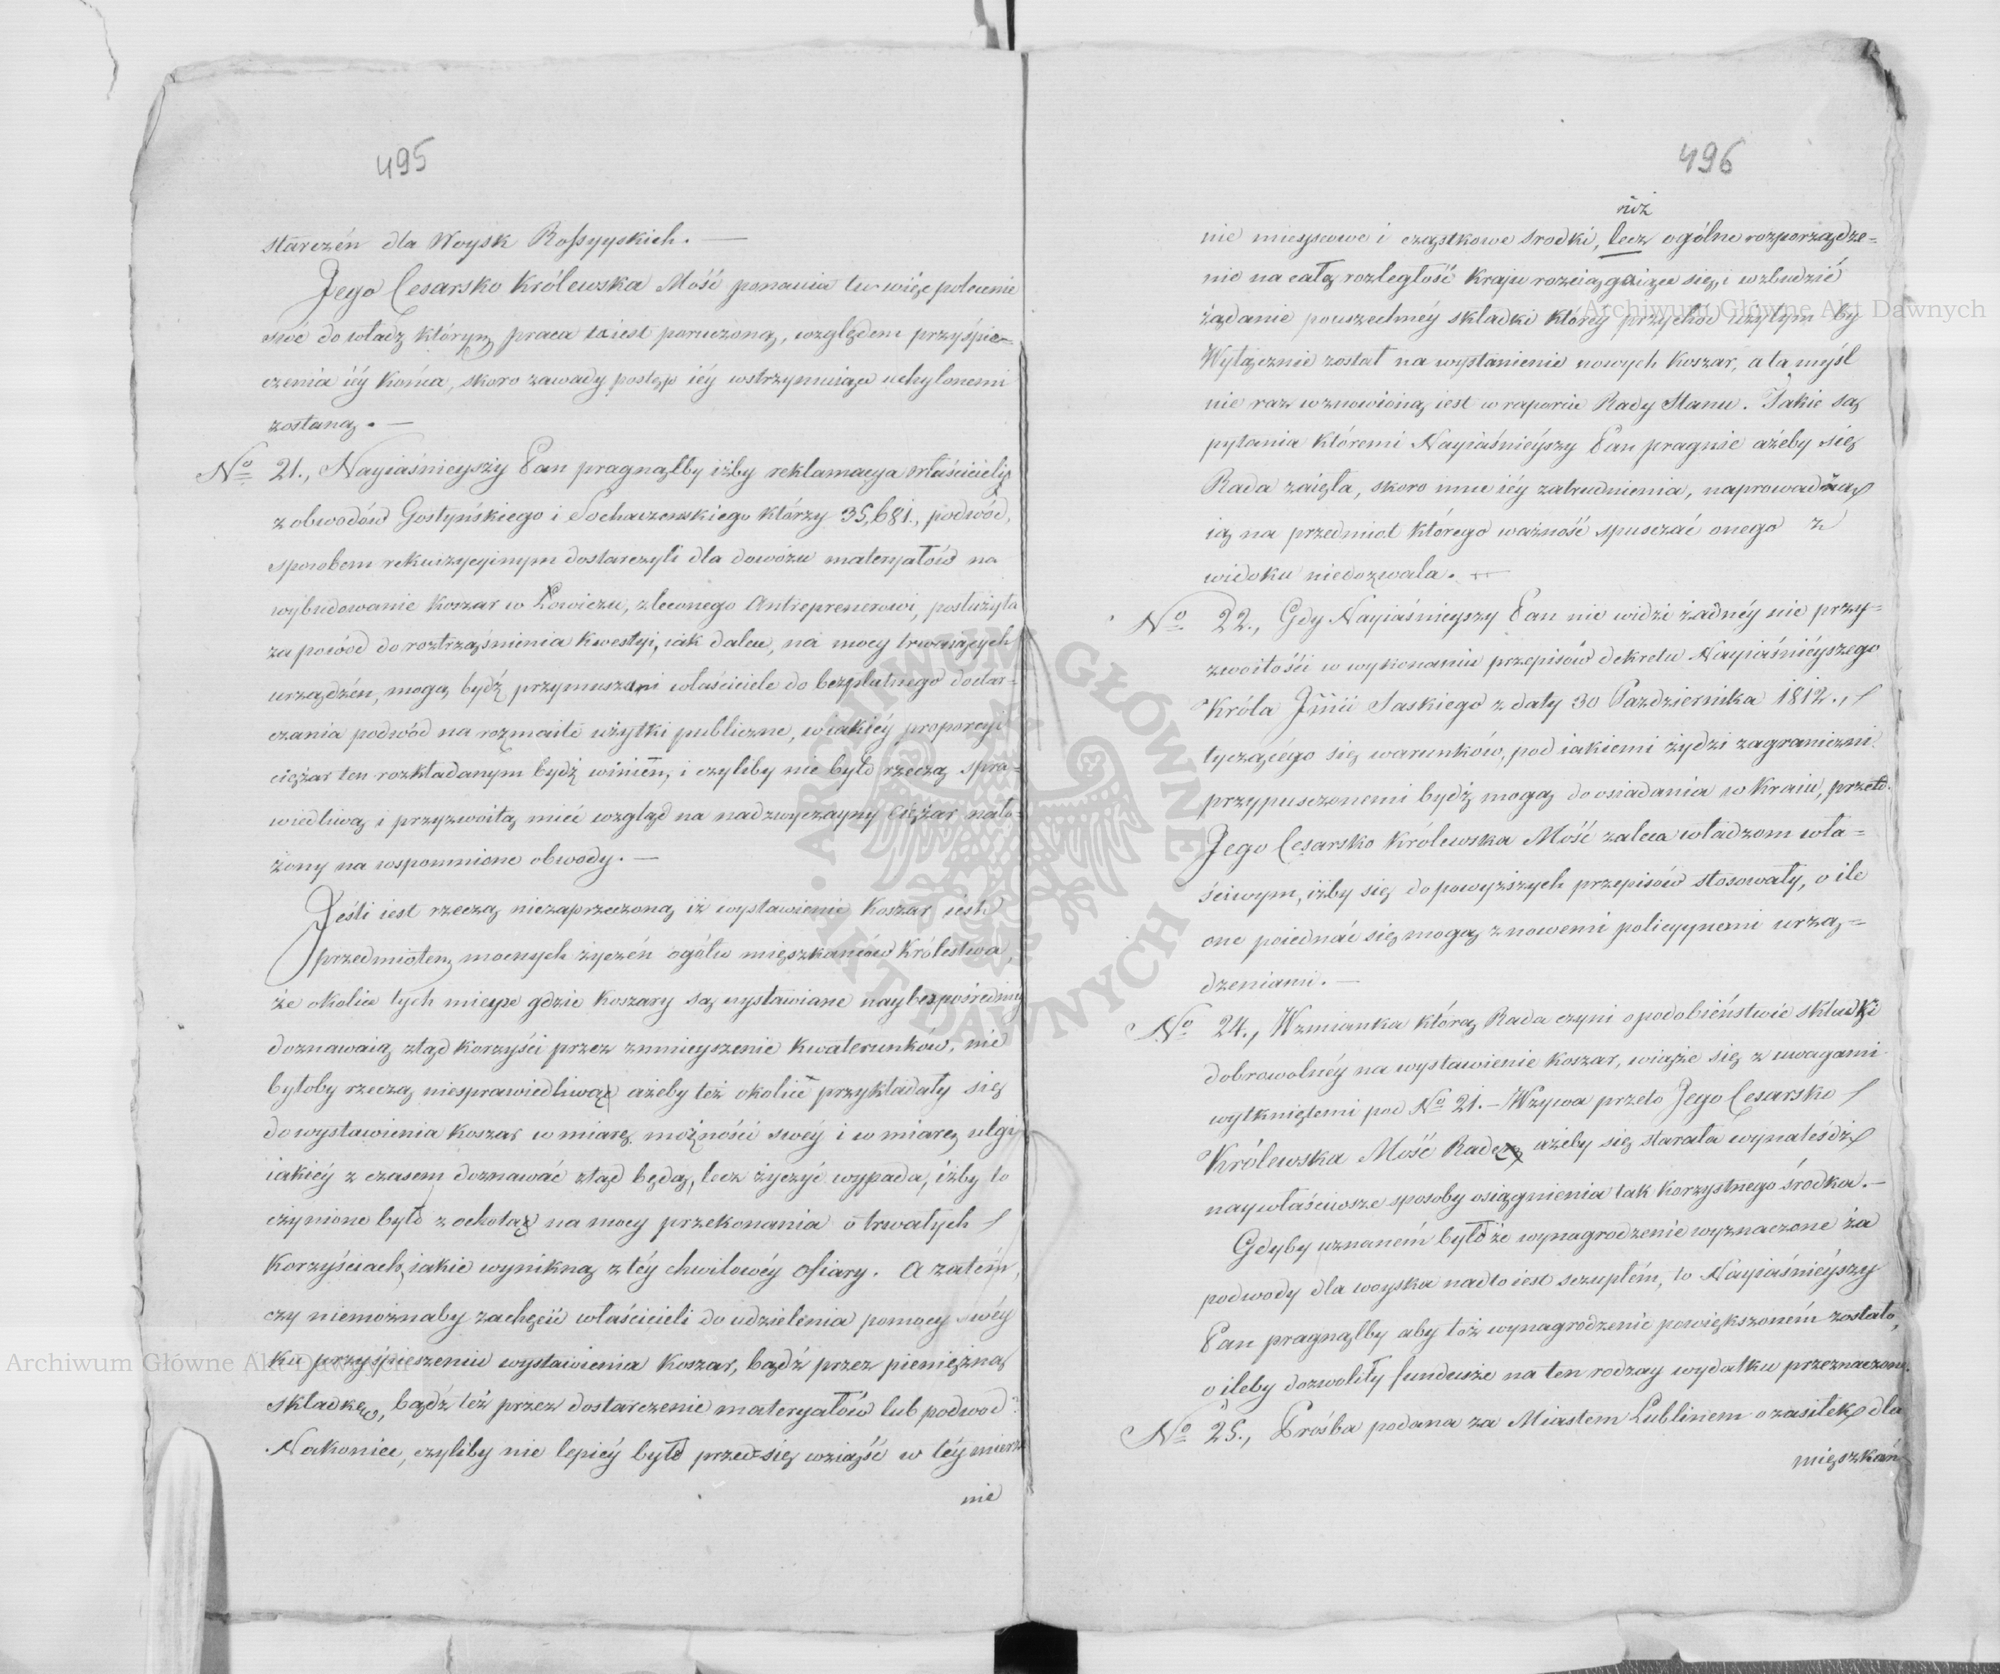 495
starczén dla Woysk Rossyyskich. —
Jego Cesarsko Królewska Mość ponawia tu więc polecenie
swé do władz którym praca ta iest poruczoną, względem przyśpie-
czenia iéy końca, skoro zawady postęp iéy wstrzymuiące uchylonemi
zostaną. —
No 21., Nayiaśnieyszy Pan pragnąłby iżby reklamacya właścicieli
z obwodów Gostyńskiego i Sochaczewskiego którzy 35,681., podwód,
sposobem rekwizycyinym dostarczyli dla dowozu materyałów na
wybudowanie koszar w Łowiczu, zleconego Antreprenerowi, posłużyła
za powód do roztrząśnienia kwestyi, iak dalece, na mocy trwaiących
urządzén, mogą bydź przymuszani właściciele do bezpłatnego dostar-
czania podwód na rozmaite użytki publiczne, w iakiéy proporcyi
ciężar ten rozkładanym bydź winien, i czyliby nie było rzeczą spra-
wiedliwą i przyzwoitą mieć wzgląd na nadzwyczayny ciężar nało-
żony na wspomnione obwody. —
Jeśli iest rzeczą niezaprzeczoną iż wystawienie koszar iest
przedmiotem mocnych życzén ogółu mięszkańców Królestwa,
że okolice tych mieysc gdzie koszary są wystawiane naybezpośredniey
doznawaią ztąd korzyści przez zmnieyszenie kwaterunków, nie
byłoby rzeczą niesprawiedliwą ażeby też okolice przykładały się
do wystawienia koszar w miarę możności swéy i w miarę ulgi
iakiéy z czasem doznawać ztąd będą, lecz życzyć wypada, iżby to
czynione było z ochotą na mocy przekonania o trwałych
korzyściach, iakie wynikną z téy chwilowéy ofiary. A zatém,
czy niemożnaby zachęcić właścicieli do udzielenia pomocy swéy
ku przyśpieszeniu wystawienia koszar, bądź przez pieniężną
składkę, bądź też przez dostarczenie materyałów lub podwod?
Nakoniec, czyliby nie lepiéy było przedsię wziąść w téy mierze
nie
496
niż
nie mieyscowe i cząstkowe srodki, lecz ogólne rozporządze-
nie na całą rozległość kraju rozciągaiące się, i wzbudzić
żądanie powszechnéy składki któréy przychod użytym by
Wyłącznie został na wystawienie nowych koszar, a ta myśl
nie raz wznowioną iest w raporcie Rady Stanu. Takie są
pytania któremi Nayiaśniéyszy Pan pragnie ażeby się
Rada zaięła, skoro inne iéy zatrudnienia, naprowadzą
ią na przedmiot którego ważność spuszczać onego z
widoku niedozwala. —
No 22., Gdy Nayiaśnieyszy Pan nie widzi żadnéy nie przy-
zwoitości w wykonaniu przepisów dekretu Nayiaśniéyszego
Króla Jmci Saskiego z daty 30 Pazdziernika 1812.,
tyczącego się warunków, pod iakiemi żydzi zagraniczni
przypusczonemi bydź mogą do osiadania w kraiu, przeto
Jego Cesarsko Królewska Mość zaleca władzom wła-
ściwym, iżby się do powyższych przepisów stosowały, o ile
one poiednać się mogą z nowemi policyynemi urzą-
dzeniami. —
No 24., Wzmianka którą Rada czyni o podobieństwie składki
dobrowolnéy na wystawienie koszar, wiąże się z uwagami
wytkniętemi pod No 21. — Wzywa przeto Jego Cesarsko
Królewska Mość Radę ażeby się starała wynaleśdź
naywłaściwsze sposoby osiągnienia tak korzystnego środka. —
Gdyby uznaném było że wynagrodzenie wyznaczone za
podwody dla woyska nadto iest szczupłém, to Nayiaśniéyszy
Pan pragnąłby aby toż wynagrodzenie powiększoném zostało,
o ileby dozwoliły fundusze na ten rodzay wydatku przeznaczone.
No 25., Prośba podana za Miastem Lublinem o zasiłek dla
mięszkań